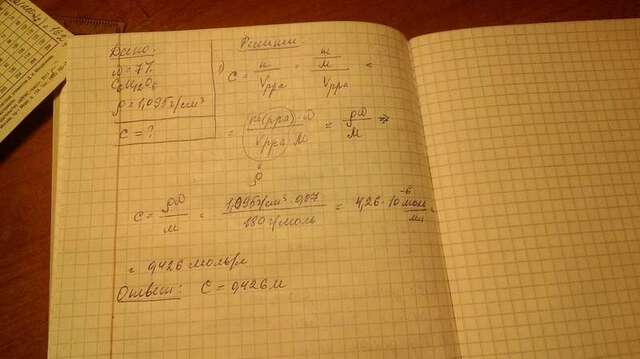 Дано:
ω = 7%
C₆H₁₂O₆
ρ = 1,095 г/см³
C = ?
Решение
1) C = n / Vрра = m/M / Vрра =
= m(рра)·ω / Vрра·M = ρω / M ⇒
ρ
C = ρω / M = 1,095 г/см³ · 0,07 / 180 г/моль = 4,26 · 10⁻⁶ моль / мл
= 0,426 моль/л
Ответ: C = 0,426 M